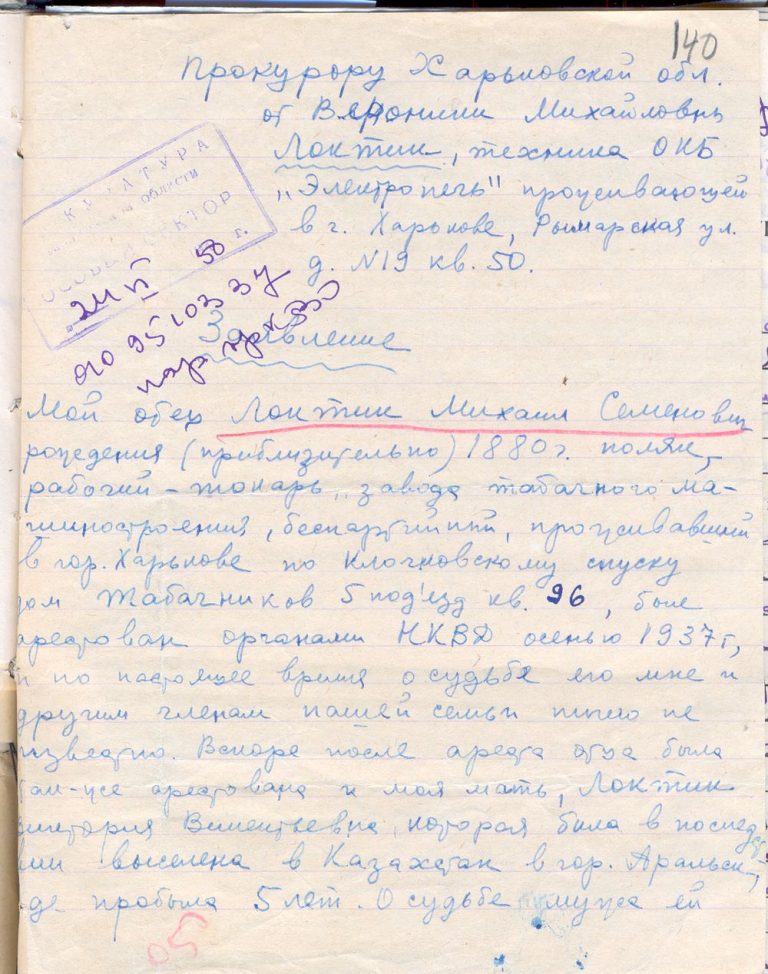 140
Прокурору Харьковской обл.
от Вероники Михайловны
Локтик, техника ОКБ
„Электропечь" проживающей
в г. Харькове, Рымарская ул.
д. №19 кв. 50.
КУРАТУРА
области
СЕКТОР
24 VI 56 г.
Заявление
Мой отец Локтик Михаил Семенович
рождения (приблизительно) 1880г. поляк,
рабочий - токарь, завода табачного ма-
шиностроения, беспартийный, проживавший
в гор. Харькове по Клочковскому спуску
дом Табачников 5 под'езд кв. 96, был
арестован органами НКВД осенью 1937г,
и по настоящее время о судьбе его мне и
другим членам нашей семьи ничего не
известно. Вскоре после ареста отца была
так-же арестована и моя мать, Локтик
Виктория Викентьевна, которая была в последст
вии выселена в Казахстан в гор. Аральск,
где пробыла 5 лет. О судьбе мужа ей